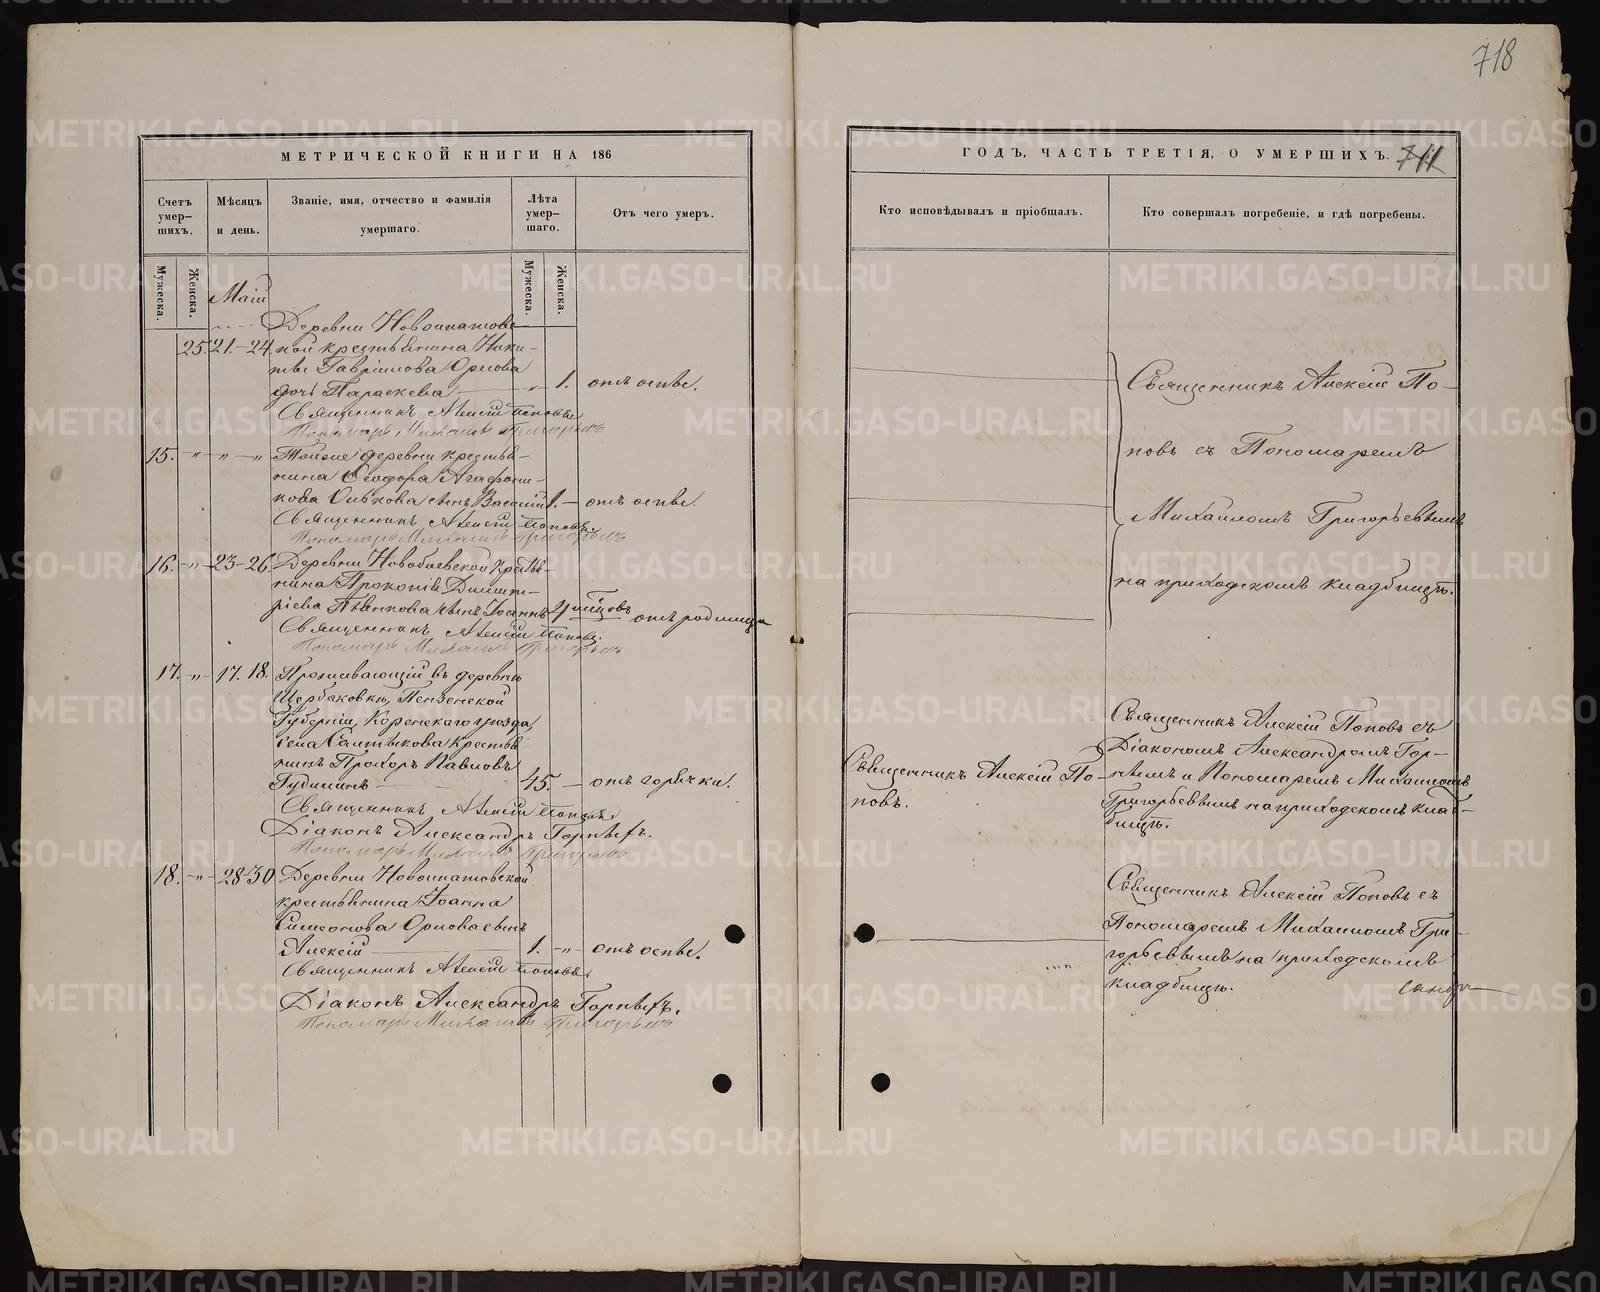 718
МЕТРИЧЕСКОЙ КНИГИ НА 186
Счетъ умер-шихъ.
Мѣсяцъ и день.
Званіе, имя, отчество и фамилія умершаго.
Лѣта умер-шаго.
Отъ чего умеръ.
Мужеска.
Женска.
Мужеска.
Женска.
Маій
Деревни Новоипатовс-
25. 21.-24. кой крестьянина Ники-
ты Гавріилова Орлова
дочь Параскева - „ 1. отъ оспы.
Священникъ Алексій Поповъ
Пономарь Михаилъ Григорьевъ
15. -„- „ -„- Тойже деревни крестья-
нина Ѳеодора Агафони-
кова сынъ Василій 1. - отъ оспы.
Священникъ Алексій Поповъ.
Пономарь Михаилъ Григорьевъ
16. -„- 23-26. Деревни крестья-
нина Прокопія Димит-
ріева Пьянкова сынъ Іоаннъ отъ родимца
Священникъ Алексій Поповъ.
Пономарь Михаилъ Григорьевъ
17. -„- 17. 18. Проживающій въ деревнѣ
Щербаковкѣ, Пензенской
Губерніи, Керенскаго уѣзда,
села Салтыкова крестья-
нинъ Прохоръ Павловъ
45. - отъ горячки.
Священникъ Алексій Поповъ.
Діаконъ Александръ
Пономарь Михаилъ Григорьевъ
18. -„- 28-30 Деревни Новоипатовской
крестьянина Іоанна
Симеонова Орлова сынъ
Алексій 1. -„- отъ оспы.
Священникъ Алексій Поповъ.
Діаконъ Александръ
Пономарь Михаилъ Григорьевъ
ГОДЪ, ЧАСТЬ ТРЕТІЯ, О УМЕРШИХЪ.
711
Кто исповѣдывалъ и пріобщалъ.
Кто совершалъ погребеніе, и гдѣ погребены.
Священникъ Алексій По-
повъ съ Пономаремъ
Михаиломъ Григорьевымъ
на приходскомъ кладбищѣ.
Священникъ Алексій По-
повъ.
Священникъ Алексій Поповъ съ
Діакономъ Александромъ Гор-
и Пономаремъ Михаиломъ
Григорьевымъ на приходскомъ клад-
бищѣ.
Священникъ Алексій Поповъ съ
Пономаремъ Михаиломъ Гри-
горьевымъ на приходскомъ
кладбищѣ.
METRIKI.GASO-URAL.RU